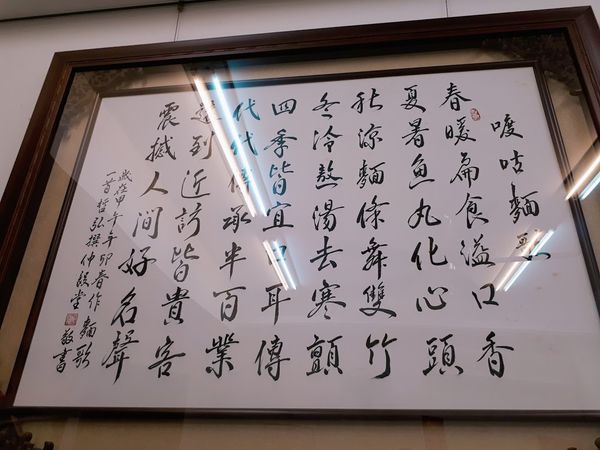 喥咕麵
春暖扁食溢口香
夏暑魚丸化心頭
秋涼麵條舞雙竹
冬冷熬湯去寒顫
四季皆宜口耳傳
代代傳承半百業
遠到近訪皆貴客
震撼人間好名聲
歲在甲午年卯春作麵歌
一首哲弘撰仲堂敬書